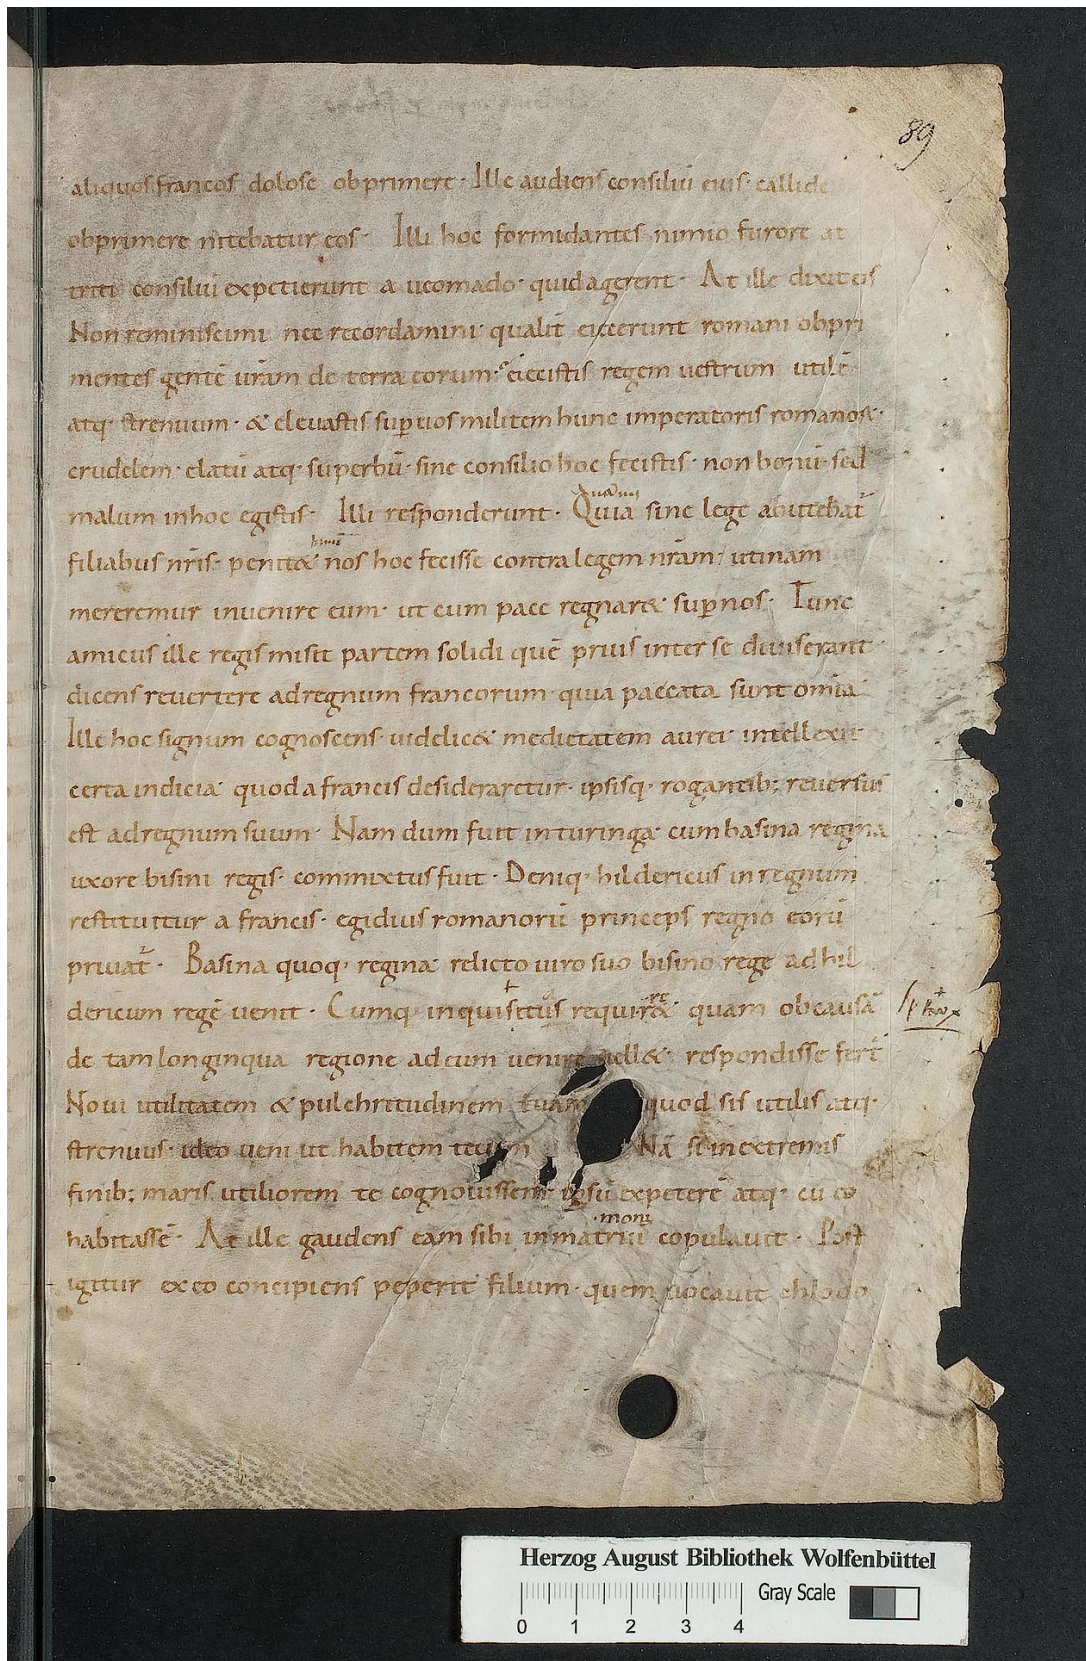 89
aliquos francos dolose obprimere· Ille audiens consiliū eius· callide
obprimere nitebatur eos· Illi hoc formidantes nimio furore at
triti consiliū expetierunt a uiomado· quid agerent· At ille dixit eis
Non reminiscimi nec recordamini· qualit̄ eiecerunt romani obpri
mentes gentē ur̄am de terra eorum· eiecistis regem uestrum utilē
atq· strenuum· & eleuastis sup̄ uos militem hunc imperatoris romanor·
crudelem· elatū atq· superbū· sine consilio hoc fecistis· non bonū sed
malum in hoc egistis· Illi responderunt· Quia sine lege abutebat̄
filiabus nr̄is· penit& nos hoc fecisse contra legem nr̄am· utinam
mereremur inuenire eum· ut cum pace regnar& sup̄ nos· Tunc
amicus ille regis misit partem solidi quē prius inter se diuiserant
dicens reuertere ad regnum francorum· quia paccata sunt omīa
Ille hoc signum cognoscens· uidelic& medietatem aurei· intellexit
certa indicia· quod a francis desideraretur· ipsisq· rogantib; reuersus
est ad regnum suum· Nam dum fuit in turinga· cum basina regina
uxore bisini regis· commixtus fuit· Deniq· hildericus in regnum
restituitur a francis· egidius romanorū princeps regno eorū
priuat̄· Basina quoq· regina relicto uiro suo bisino rege ad hil
dericum regē uenit· Cumq· inquisitus requir& quam ob causā
de tam longinqua regione ad eum uenire uell& respondisse fert̄
Noui utilitatem & pulchritudinem tuam quod sis utilis atq·
strenuus· ideo ueni ut habitem tecum Nā si in extremis
finib; maris utiliorem te cognouissem ipsū expeterē atq· cū eo
habitassē· At ille gaudens eam sibi in matriū copulauit· Post
igitur ex eo concipiens peperit filium· quem uocauit chlodo
Herzog August Bibliothek Wolfenbüttel
Gray Scale
0 1 2 3 4